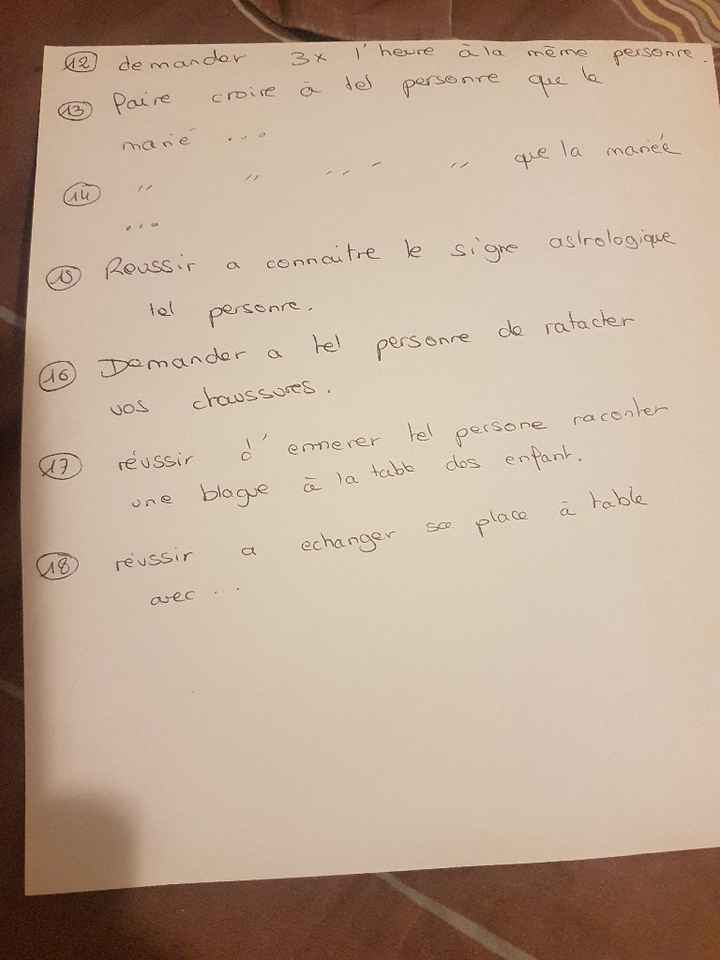 12 demander 3x l'heure à la même personne.
13 Faire croire à tel personne que le
marié ...
14 " " " " que la mariée
...
15 Reussir a connaitre le signe astrologique
tel personne.
16 Demander a tel personne de ratacter
vos chaussures.
17 réussir d' emnerer tel persone raconter
une blague à la table des enfant.
18 réussir a echanger sa place à table
avec ...